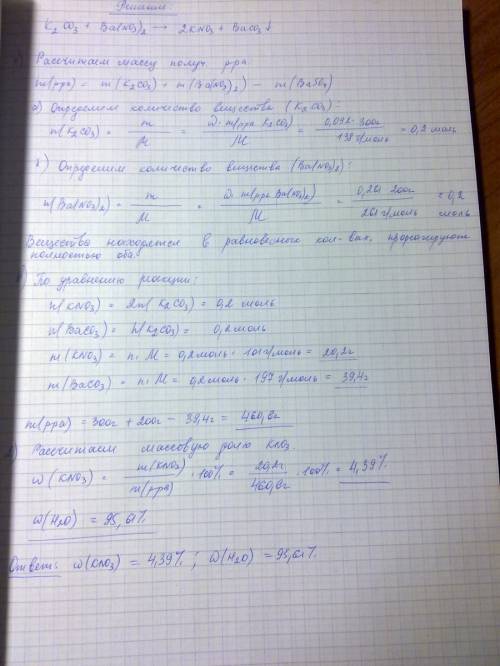 Решение:
K₂CO₃ + Ba(NO₃)₂ → 2KNO₃ + BaCO₃↓
Рассчитаем массу получ. р-ра
m(р-ра) = m(K₂CO₃) + m(Ba(NO₃)₂) - m(BaSO₄)
Определяем количество вещества (K₂CO₃):
n(K₂CO₃) = m/M = ω·m(р-ра K₂CO₃)/M = 0,092·300г/138 г/моль = 0,2 моль
Определим количество вещества (Ba(NO₃)₂):
n(Ba(NO₃)₂) = m/M = ω·m(р-ра Ba(NO₃)₂)/M = 0,261·200г/261 г/моль = 0,2 моль
Вещества находятся в равновесных кол-вах,
полностью оба.
По уравнению реакции:
n(KNO₃) = 2n(K₂CO₃) = 0,2 моль
n(BaCO₃) = n(K₂CO₃) = 0,2 моль
m(KNO₃) = n·M = 0,2моль · 101г/моль = 20,2г
m(BaCO₃) = n·M = 0,2моль · 197 г/моль = 39,4г
m(р-ра) = 300г + 200г - 39,4г = 460,6г
Рассчитаем массовую долю KNO₃
ω(KNO₃) = m(KNO₃)/m(р-ра) · 100% = 20,2г/460,6г · 100% = 4,39%
ω(H₂O) = 95,61%
Ответ: ω(KNO₃) = 4,39%; ω(H₂O) = 95,61%